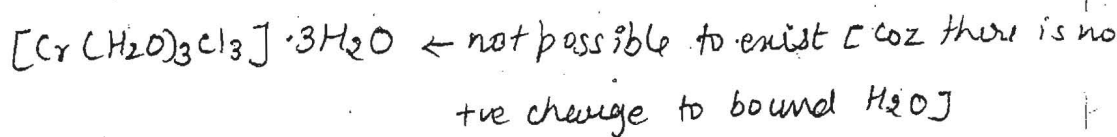 [Cr(H2O)3Cl3]·3H2O ← not possible to exist [coz there is no
+ve charge to bound H2O]